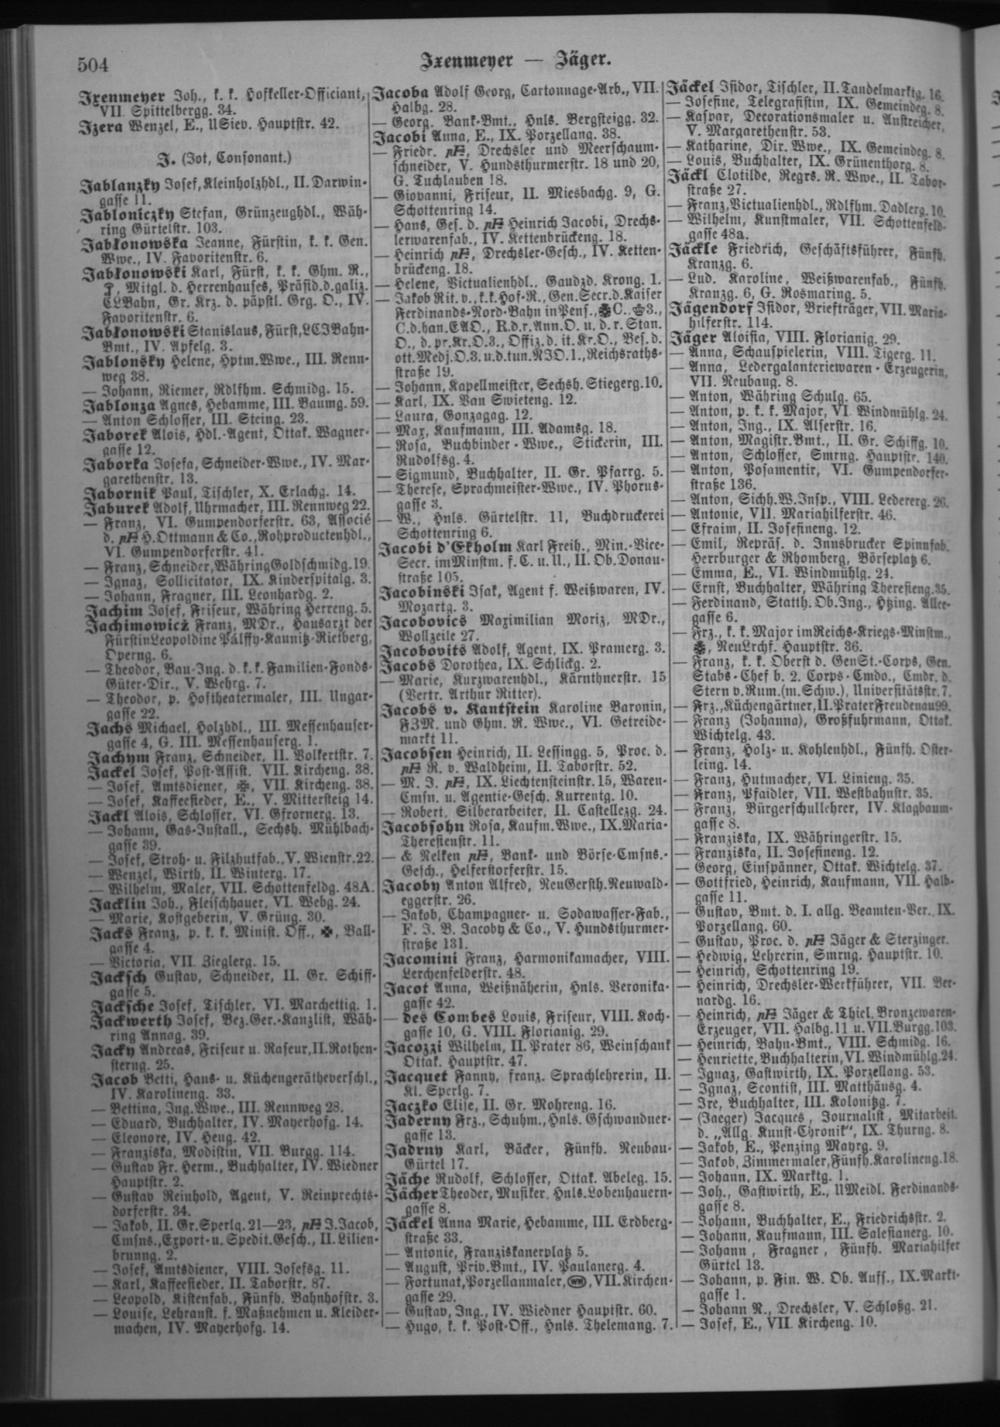 504
Ixenmeyer — Jäger.
Ixenmeyer Joh., k. k. Hofkeller-Officiant,
VII. Spittelbergg. 34.
Izera Wenzel, E., USiev. Hauptstr. 42.
J. (Jot, Consonant.)
Jablanzky Josef, Kleinholzhdl., II. Darwin-
gasse 11.
Jabloniczky Stefan, Grünzeughdl., Wäh-
ring Gürtelstr. 103.
Jabłonowska Jeanne, Fürstin, k. k. Gen.
Wwe., IV. Favoritenstr. 6.
Jabłonowski Karl, Fürst, k. k. Ghm. R.,
Mitgl. d. Herrenhauses, Präsid. d. galiz.
CLBahn, Gr. Krz. d. päpstl. Grg. O., IV.
Favoritenstr. 6.
Jabłonowski Stanislaus, Fürst, LCJBahn-
Bmt., IV. Apfelg. 3.
Jablonsky Helene, Hptm. Wwe., III. Renn-
weg 38.
— Johann, Riemer, Rdlfhm. Schmidg. 15.
Jablonza Agnes, Hebamme, III. Baumg. 59.
— Anton Schlosser, III. Steing. 23.
Jaborek Alois, Hdl.-Agent, Ottak. Wagner-
gasse 12.
Jaborka Josefa, Schneider-Wwe., IV. Mar-
garethenstr. 13.
Jabornik Paul, Tischler, X. Erlachg. 14.
Jaburek Adolf, Uhrmacher, III. Rennweg 22.
— Franz, VI. Gumpendorferstr. 63, Associé
d. pH H. Ottmann & Co., Rohproductenhdl.,
VI. Gumpendorferstr. 41.
— Franz, Schneider, Währing Goldschmidg. 19.
— Ignaz, Sollicitator, IX. Kinderspitalg. 3.
— Johann, Fragner, III. Leonhardg. 2.
Jachim Josef, Friseur, Währing Herreng. 5.
Jachimowicz Franz, MDr., Hausarzt der
Fürstin Leopoldine Pálffy-Kaunitz-Rietberg,
Operng. 6.
— Theodor, Bau-Ing. d. k. k. Familien-Fonds-
Güter-Dir., V. Wehrg. 7.
— Theodor, p. Hoftheatermaler, III. Ungar-
gasse 22.
Jachs Michael, Holzhdl., III. Messenhauser-
gasse 4, G. III. Messenhauserg. 1.
Jachym Franz, Schneider, II. Volkertstr. 7.
Jackel Josef, Post-Assist. VII. Kircheng. 38.
— Josef, Amtsdiener, VII. Kircheng. 38.
— Josef, Kaffeesieder, E., V. Mittersteig 14.
Jackl Alois, Schlosser, VI. Gfrornerg. 13.
— Johann, Gas-Install., Sechsh. Mühlbach-
gasse 39.
— Josef, Stroh- u. Filzhutfab., V. Wienstr. 22.
— Wenzel, Wirth, II. Winterg. 17.
— Wilhelm, Maler, VII. Schottenfeldg. 48A.
Jacklin Joh., Fleischhauer, VI. Webg. 24.
— Marie, Kostgeberin, V. Grüng. 30.
Jacks Franz, p. k. k. Minist. Off., Ball-
gasse 4.
— Victoria, VII. Zieglerg. 15.
Jacksch Gustav, Schneider, II. Gr. Schiff-
gasse 5.
Jacksche Josef, Tischler, VI. Marchettig. 1.
Jackwerth Josef, Bez. Ger.-Kanzlist, Wäh-
ring Annag. 39.
Jacky Andreas, Friseur u. Raseur, II. Rothen-
sterng. 25.
Jacob Betti, Haus- u. Küchengerätheverschl.,
IV. Karolineng. 33.
— Bettina, Ing. Wwe., III. Rennweg 28.
— Eduard, Buchhalter, IV. Mayerhofg. 14.
— Eleonore, IV. Heug. 42.
— Franziska, Modistin, VII. Burgg. 114.
— Gustav Fr. Herm., Buchhalter, IV. Wiedner
Hauptstr. 2.
— Gustav Reinhold, Agent, V. Reinprechts-
dorferstr. 34.
— Jakob, II. Gr. Sperlg. 21—23, pH J. Jacob,
Cmsns., Export- u. Spedit. Gesch., II. Lilien-
brunng. 2.
— Josef, Amtsdiener, VIII. Josefsg. 11.
— Karl, Kaffeesieder, II. Taborstr. 87.
— Leopold, Kistenfab., Fünfh. Bahnhofstr. 3.
— Louise, Lehranst. f. Maßnehmen u. Kleider-
machen, IV. Mayerhofg. 14.
Jacoba Adolf Georg, Cartonnage-Arb., VII.
Halbg. 28.
— Georg, Bank-Bmt., Hnls. Bergsteigg. 32.
Jacobi Anna, E., IX. Porzellang. 38.
— Friedr. pH, Drechsler und Meerschaum-
schneider, V. Hundsthurmerstr. 18 und 20,
G. Tuchlauben 18.
— Giovanni, Friseur, II. Miesbachg. 9, G.
Schottenring 14.
— Hans, Ges. d. pH Heinrich Jacobi, Drechs-
lerwarenfab., IV. Kettenbrückeng. 18.
— Heinrich pH, Drechsler-Gesch., IV. Ketten-
brückeng. 18.
— Helene, Victualienhdl., Gaudzd. Krong. 1.
— Jakob Rit. v., k. k. Hof-R., Gen. Secr. d. Kaiser
Ferdinands-Nord-Bahn in Pens., C., 3.,
C. d. han. EAO., R. d. r. Ann. O. u. d. r. Stan.
O., d. pr. Kr. O. 3., Offiz. d. it. Kr. O., Bes. d.
ott. Medj. O. 3. u. d. tun. NJO. 1., Reichsraths-
straße 19.
— Johann, Kapellmeister, Sechsh. Stiegerg. 10.
— Karl, IX. Van Swieteng. 12.
— Laura, Gonzagag. 12.
— Max, Kaufmann, III. Adamsg. 18.
— Rosa, Buchbinder-Wwe., Stickerin, III.
Rudolfsg. 4.
— Sigmund, Buchhalter, II. Gr. Pfarrg. 5.
— Therese, Sprachmeister-Wwe., IV. Phorus-
gasse 3.
— W., Hnls. Gürtelstr. 11, Buchdruckerei
Schottenring 6.
Jacobi d'Ekholm Karl Freih., Min.-Vice-
Secr. im Minstm. f. C. u. U., II. Ob. Donau-
straße 105.
Jacobinski Isak, Agent f. Weißwaren, IV.
Mozartg. 3.
Jacobovics Maximilian Moriz, MDr.,
Wollzeile 27.
Jacobovits Adolf, Agent, IX. Pramerg. 3.
Jacobs Dorothea, IX. Schlickg. 2.
— Marie, Kurzwarenhdl., Kärnthnerstr. 15
(Vertr. Arthur Ritter).
Jacobs v. Kantstein Karoline Baronin,
FZM. und Ghm. R. Wwe., VI. Getreide-
markt 11.
Jacobsen Heinrich, II. Lessingg. 5, Proc. d.
pH R. v. Waldheim, II. Taborstr. 52.
— M. J. pH, IX. Liechtensteinstr. 15, Waren-
Cmsn. u. Agentie-Gesch. Kurrentg. 10.
— Robert, Silberarbeiter, II. Castellezg. 24.
Jacobsohn Rosa, Kaufm. Wwe., IX. Maria-
Theresienstr. 11.
— & Nelken pH, Bank- und Börse-Cmsns.-
Gesch., Helferstorferstr. 15.
Jacoby Anton Alfred, NeuGersth. Neuwald-
eggerstr. 26.
— Jakob, Champagner- u. Sodawasser-Fab.,
F. J. B. Jacoby & Co., V. Hundsthurmer-
straße 131.
Jacomini Franz, Harmonikamacher, VIII.
Lerchenfelderstr. 48.
Jacot Anna, Weißnäherin, Hnls. Veronika-
gasse 42.
— des Combes Louis, Friseur, VIII. Koch-
gasse 10, G. VIII. Florianig. 29.
Jacozzi Wilhelm, II. Prater 86, Weinschank
Ottak. Hauptstr. 47.
Jacquet Fanny, franz. Sprachlehrerin, II.
Kl. Sperlg. 7.
Jaczko Elise, II. Gr. Mohreng. 16.
Jaderny Frz., Schuhm., Hnls. Gschwandner-
gasse 13.
Jadrny Karl, Bäcker, Fünfh. Neubau-
Gürtel 17.
Jäche Rudolf, Schlosser, Ottak. Abeleg. 15.
Jächer Theodor, Musiker, Hnls. Lobenhauern-
gasse 8.
Jäckel Anna Marie, Hebamme, III. Erdberg-
straße 33.
— Antonie, Franziskanerplatz 5.
— August, Priv. Bmt., IV. Paulanerg. 4.
— Fortunat, Porzellanmaler, VII. Kirchen-
gasse 29.
— Gustav, Ing., IV. Wiedner Hauptstr. 60.
— Hugo, k. k. Post-Off., Hnls. Thelemang. 7.
Jäckel Isidor, Tischler, II. Tandelmarktg. 16.
— Josefine, Telegrafistin, IX. Gemeindeg. 8.
— Kaspar, Decorationsmaler u. Anstreicher,
V. Margarethenstr. 53.
— Katharine, Dir. Wwe., IX. Gemeindeg. 8.
— Louis, Buchhalter, IX. Grünenthorg. 8.
Jäckl Clotilde, Regrs. R. Wwe., II. Tabor-
straße 27.
— Franz, Victualienhdl., Rdlfhm. Dadlerg. 10.
— Wilhelm, Kunstmaler, VII. Schottenfeld-
gasse 48a.
Jäckle Friedrich, Geschäftsführer, Fünfh.
Kranzg. 6.
— Lud. Karoline, Weißwarenfab., Fünfh.
Kranzg. 6, G. Rosmaring. 5.
Jägendorf Isidor, Briefträger, VII. Maria-
hilferstr. 114.
Jäger Aloisia, VIII. Florianig. 29.
— Anna, Schauspielerin, VIII. Tigerg. 11.
— Anna, Ledergalanteriewaren-Erzeugerin,
VII. Neubaug. 8.
— Anton, Währing Schulg. 65.
— Anton, p. k. k. Major, VI. Windmühlg. 24.
— Anton, Ing., IX. Alserstr. 16.
— Anton, Magistr. Bmt., II. Gr. Schiffg. 10.
— Anton, Schlosser, Smrng. Hauptstr. 140.
— Anton, Posamentir, VI. Gumpendorfer-
straße 136.
— Anton, Sichh. W. Insp., VIII. Ledererg. 26.
— Antonie, VII. Mariahilferstr. 46.
— Efraim, II. Josefineng. 12.
— Emil, Repräs. d. Innsbrucker Spinnfab.
Herrburger & Rhomberg, Börseplatz 6.
— Emma, E., VI. Windmühlg. 24.
— Ernst, Buchhalter, Währing Theresieng. 35.
— Ferdinand, Statth. Ob. Ing., Htzing. Allee-
gasse 6.
— Frz., k. k. Major im Reichs-Kriegs-Minstm.,
NeuLrchf. Hauptstr. 36.
— Franz, k. k. Oberst d. GenSt.-Corps, Gen.
Stabs-Chef b. 2. Corps-Cmdo., Cmdr. d.
Stern v. Rum. (m. Schw.), Universitätsstr. 7.
— Frz., Küchengärtner, II. Prater Freudenau 99.
— Franz (Johanna), Großfuhrmann, Ottak.
Wichtelg. 43.
— Franz, Holz- u. Kohlenhdl., Fünfh. Öster-
leing. 14.
— Franz, Hutmacher, VI. Linieng. 35.
— Franz, Pfaidler, VII. Westbahnstr. 35.
— Franz, Bürgerschullehrer, IV. Klagbaum-
gasse 8.
— Franziska, IX. Währingerstr. 15.
— Franziska, II. Josefineng. 12.
— Georg, Einspänner, Ottak. Wichtelg. 37.
— Gottfried, Heinrich, Kaufmann, VII. Halb-
gasse 11.
— Gustav, Bmt. d. I. allg. Beamten-Ver., IX.
Porzellang. 60.
— Gustav, Proc. d. pH Jäger & Sterzinger.
— Hedwig, Lehrerin, Smrng. Hauptstr. 10.
— Heinrich, Schottenring 19.
— Heinrich, Drechsler-Werkführer, VII. Ber-
nardg. 16.
— Heinrich, pH Jäger & Thiel, Bronzewaren-
Erzeuger, VII. Halbg. 11 u. VII. Burgg. 103.
— Heinrich, Bahn-Bmt., VIII. Schmidg. 16.
— Henriette, Buchhalterin, VI. Windmühlg. 24.
— Ignaz, Gastwirth, IX. Porzellang. 53.
— Ignaz, Scontist, III. Matthäusg. 4.
— Ire, Buchhalter, III. Kolonitzg. 7.
— (Jaeger) Jacques, Journalist, Mitarbeit.
d. „Allg. Kunst-Chronik“, IX. Thurng. 8.
— Jakob, E., Penzing Mayrg. 9.
— Jakob, Zimmermaler, Fünfh. Karolineng. 18.
— Johann, IX. Marktg. 1.
— Joh., Gastwirth, E., UMeidl. Ferdinands-
gasse 8.
— Johann, Buchhalter, E., Friedrichsstr. 2.
— Johann, Kaufmann, III. Salesianerg. 10.
— Johann, Fragner, Fünfh. Mariahilfer
Gürtel 13.
— Johann, p. Fin. W. Ob. Auff., IX. Markt-
gasse 1.
— Johann N., Drechsler, V. Schloßg. 21.
— Josef, E., VII. Kircheng. 10.